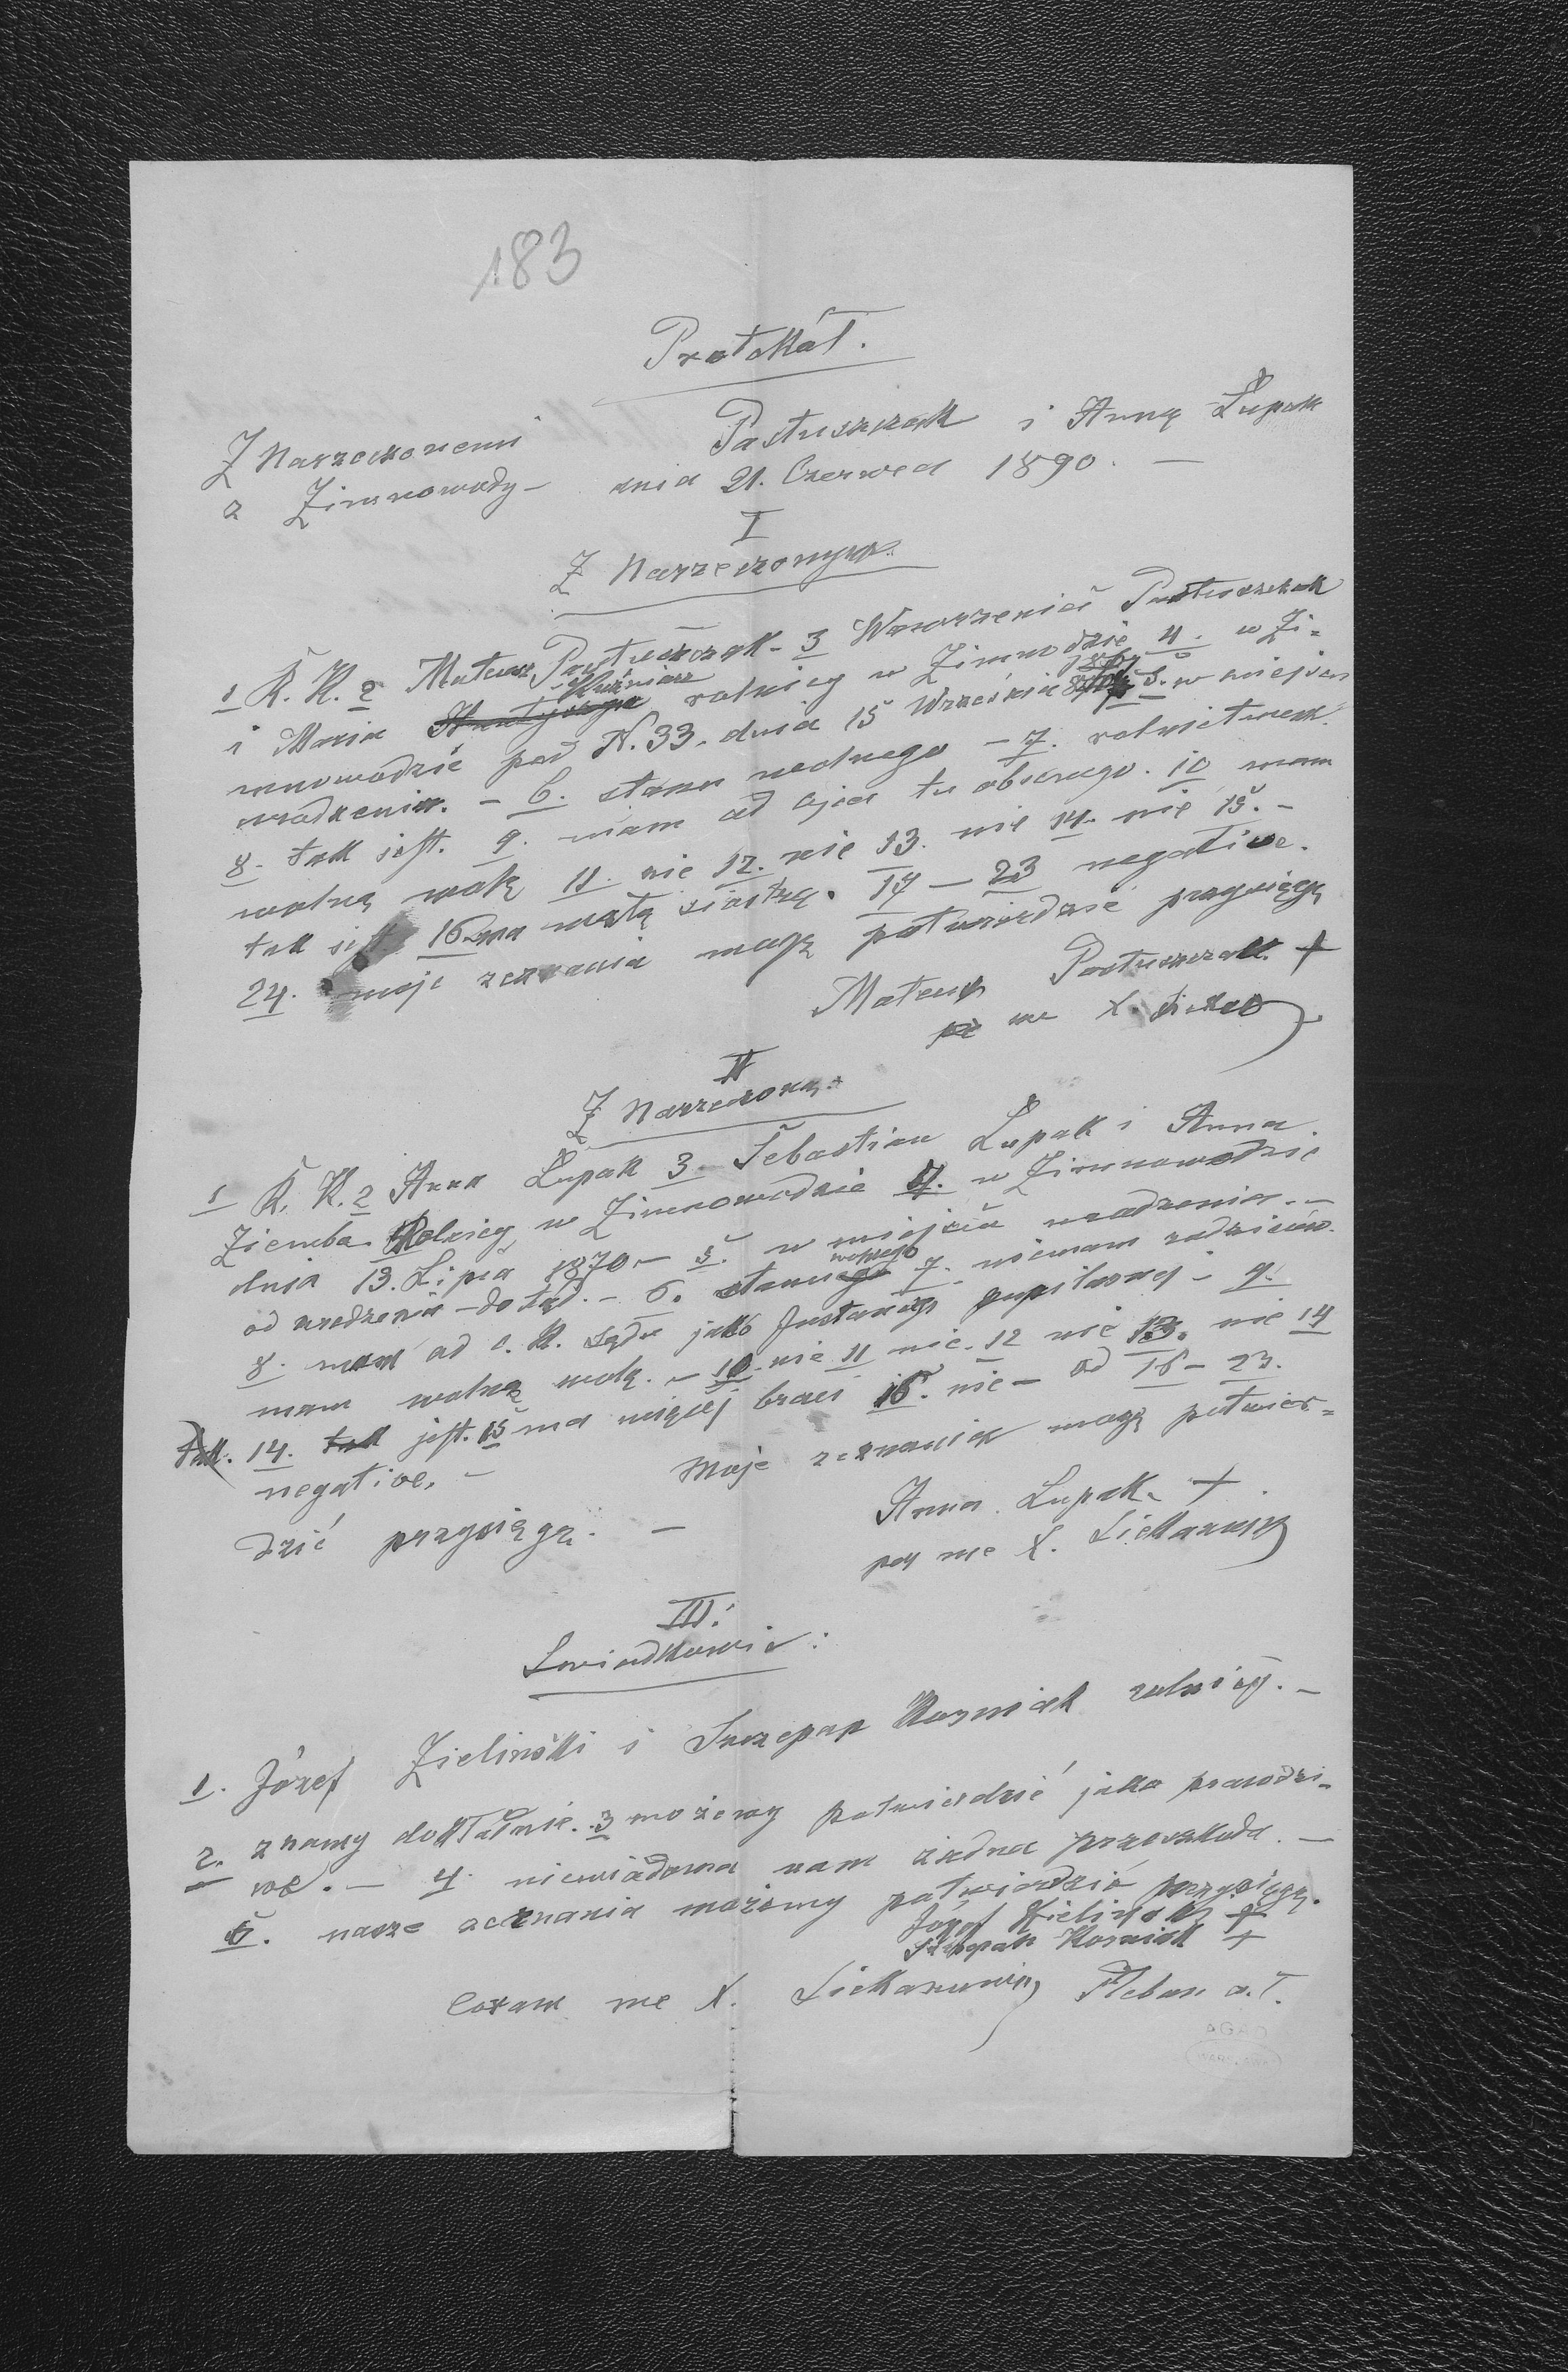 183
Protokół.
Z Narzeczonemi Pastuszczak i Anną Łupak
z Zimnowody – dnia 21. Czerwca 1890. –
I
Z Narzeczonym.
1 R. K. 2 Mateusz Pastuszczak – 3 Wawrzeniec Pastuszczak
i Maria Kuźniarz rolnicy w Zimnodzie 4. w Zi-
mnowodzie pod N. 33. dnia 15 Września 5. w miejscu
urodzenia. – 6. stanu wolnego – 7. rolnictwem.
8. tak jest. 9. mam od ojca tu obecnego. 10 mam
wolną wolę 11. nie 12. nie 13. nie 14. nie 15. –
tak jest 16 ma małą siostrę. 17 – 23 negative.
24. moje zeznania mogę potwierdzić przysięgą
Mateusz Pastuszczak +
me X.
II
Z Narzeczoną.
1 R. K. 2 Anna Łupak 3. Sebastian Łupak i Anna
Ziemba Rolnicy w Zimnowodzie 4. w Zimnowodzie
dnia 13. Lipca 1870 – 5. w miejscu urodzenia. –
od urodzenia – dotąd. – 6. stanu wolnego 7. niemam rodziców.
8. mam od c. K. sądu jako Instancyi pupilarnej – 9.
mam wolną wolę. – 10. nie 11 nie. 12 nie 13. nie 14
tak. 14. tak jest. 15 ma więcej braci 16. nie – od 16 – 23.
negative. – Moje zeznania mogę potwier-
dzić przysięgą. –
Anna Łupak. +
per me X. Siekanowicz
III.
Swiadkowie:
1. Józef Zieliński i Szczepan Kosniak rolnicy. –
2. znamy dokładnie. 3 możemy potwierdzić jako prawdzi-
we. – 4. niewiadoma nam żadna przeszkoda. –
5. nasze zeznania możemy potwierdzić przysięgą.
Józef Zieliński +
Szczepan Kosniak +
Coram me X. Siekanowicz Pleban o. ł.
AGAD
WARSZAWA